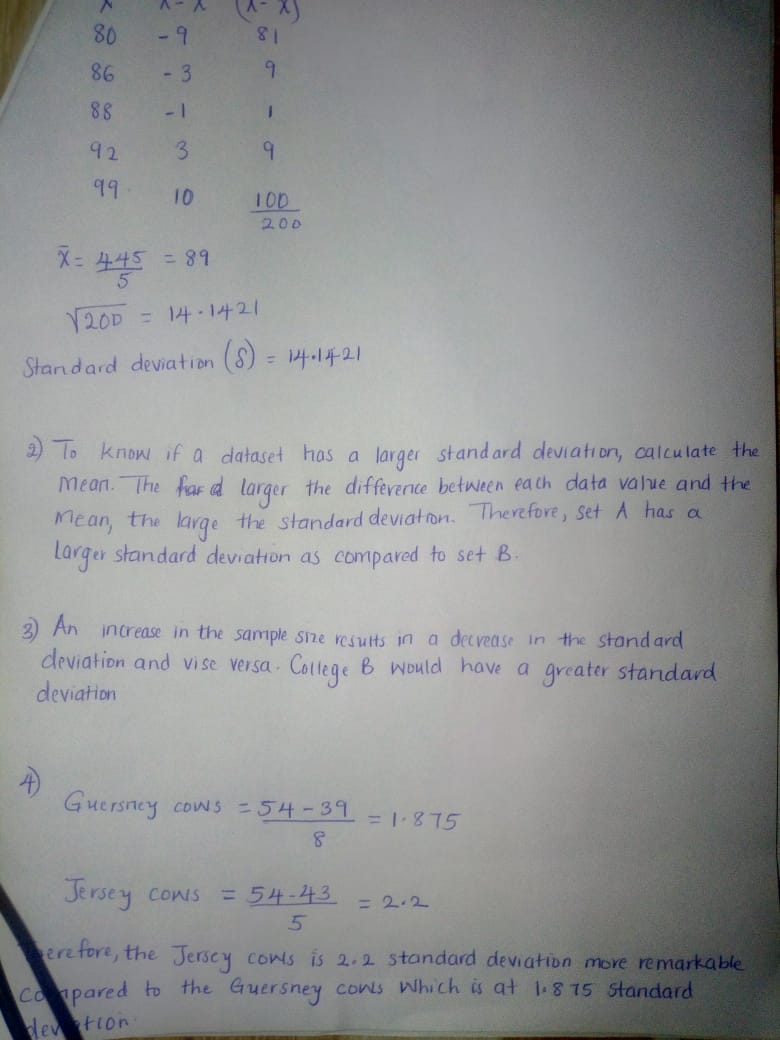 X X - X̄ (X - X̄)
80 - 9 81
86 - 3 9
88 - 1 1
92 3 9
99 10 100
200
X̄ = 445/5 = 89
√200 = 14.1421
Standard deviation (S) = 14.1421
2) To know if a dataset has a larger standard deviation, calculate the
mean. The larger the difference between each data value and the
mean, the large the standard deviation. Therefore, set A has a
larger standard deviation as compared to set B.
3) An increase in the sample size results in a decrease in the standard
deviation and vise versa. College B would have a greater standard
deviation
4)
Guersney cows = 54 - 39 / 8 = 1.875
Jersey cows = 54 - 43 / 5 = 2.2
Therefore, the Jersey cows is 2.2 standard deviation more remarkable
compared to the Guersney cows which is at 1.875 standard
deviation